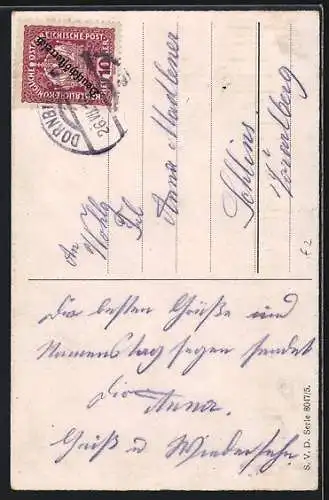 KAISERLICHE KÖNIGLICHE ÖSTERREICHISCHE POST
Deutschösterreich
DORNBI
26.VII
An
Wohlg
Frl
Anna Madlener
Schlins
Vorarlberg
£2
Die besten Grüße und
Namenstag segen sendet
Dir
Anna.
Gruß u Wiedersehn
S. V. D. Serie 8047/5.